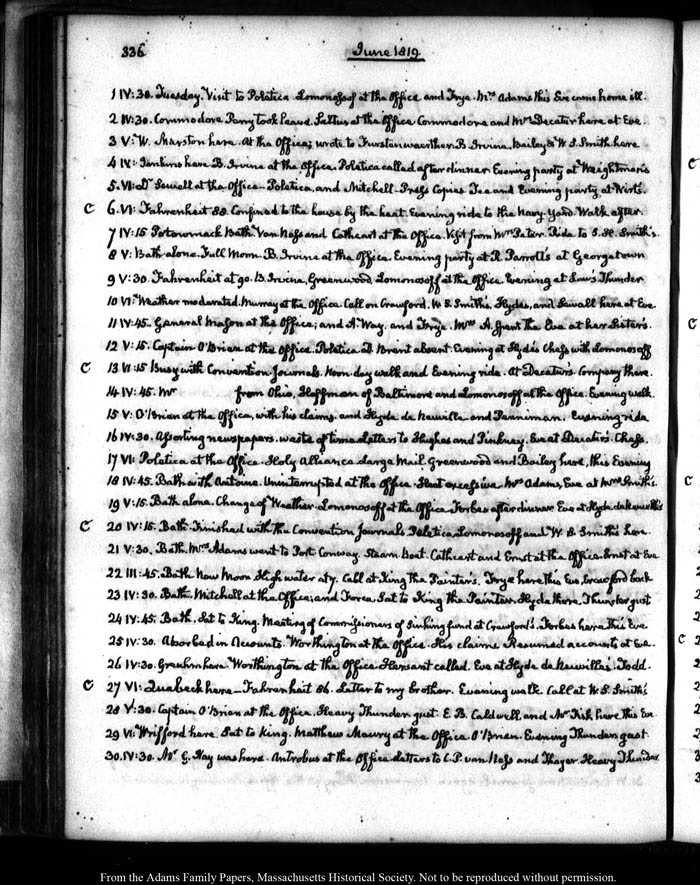 336
June 1819
1 IV:30. Tuesday. Visit to Poletica. Lomonosof at the Office and Frye. Mrs Adams this Eve came home ill.
2 IV:30. Commodore Perry took leave. Pettus at the Office Commodore and Mrs Decatur here at Eve.
3 V: W. Marston here. At the Office; wrote to Furstenwaerther. B. Irvine, Bailey & W. S. Smith here
4 IV: Jenkins here B. Irvine at the Office. Poletica called after dinner Evening party at Weightman's
5. VI: Dr Sewall at the Office. Poletica, and Mitchell. Press Copies Tea and Evening party at Wirt's.
C 6. VI: Fahrenheit 88. Confined to the house by the heat. Evening ride to the Navy-Yard. Walk after.
7 IV:15 Potowmack Bath. Van Ness and Cathcart at the Office. Visit from Mrs Peter. Ride to S. H. Smith's.
8 V: Bath alone. Full Moon. B. Irvine at the Office. Evening party at R. Parrott's at Georgetown
9 V:30. Fahrenheit at 90. B. Irvine, Greenwood, Lomonosoff at the Office. Evening at Law's Thunder
10 VI: Weather moderated. Murray at the Office. Call on Crawford. W. S. Smiths, Hydes, and Sewall here at Eve
11 IV:45. General Mason at the Office; and A. Way, and Frye. Mrs A. spent the Eve at her Sister's.
12 V:15. Captain O'Brien at the Office. Poletica D. Brent absent. Evening at Hyde's Chess with Lomonosoff
C 13 VI:15 Busy with Convention Journals. Noon day walk and Evening ride. At Decatur's. Company there.
14 IV:45. Mr from Ohio, Hoffman of Baltimore and Lomonosoff at the Office. Evening walk.
15 V: O'Brian at the Office, with his claims. and Hyde de Neuville and Panniman. Evening ride
16 IV:30. Assorting newspapers. waste of time. Letters to Hughes and Pinkney. Eve at Decatur's. Chess.
17 VI: Poletica at the Office. Holy Alliance. Large Mail. Greenwood and Bailey here, this Evening
18 IV:45. Bath with Antoine. Uninterrupted at the Office. Heat excessive. Mrs Adams, Eve at Mrs Smith's.
19 V:15. Bath alone. Change of Weather. Lomonosoff at the Office Forbes after dinner Eve at Hyde de Neuville's
C 20 IV:15. Bath. Finished with the Convention Journals Poletica, Lomonosoff and W. S. Smiths here.
21 V:30. Bath. Mrs Adams went to Port Conway. Steam Boat. Cathcart and Ernst at the Office. Ernst at Eve
22 III:45. Bath New Moon High water at 7. Call at King the Painter's. Frye here this Eve. Crawford back
23 IV:30. Bath. Mitchell at the Office; and Forea. Sat to King the Painter. Hyde there. Thunder gust
24 IV:45. Bath. Sat to King. Meeting of Commissioners of Sinking fund at Crawford's. Forbes here this Eve
25 IV:30. Absorbed in Accounts. Worthington at the Office. His claims Resumed accounts at Eve.
26 IV:30. Greuhm here. Worthington at the Office Pleasant called. Eve at Hyde de Neuville's Todd.
C 27 VI: Quabeck here_ Fahrenheit 86. Letter to my brother. Evening walk. Call at W. S. Smith's
28 V:30. Captain O'Brian at the Office. Heavy Thunder gust. E. B. Caldwell, and Mr Fisk here this Eve
29 VI: Wrifford here. Sat to King. Matthew Maury at the Office. O'Brien. Evening Thunder gust.
30. IV:30. Mr G. Hay was here. Antrobus at the Office Letters to C. P. van Ness and Thayer. Heavy Thunder
From the Adams Family Papers, Massachusetts Historical Society. Not to be reproduced without permission.